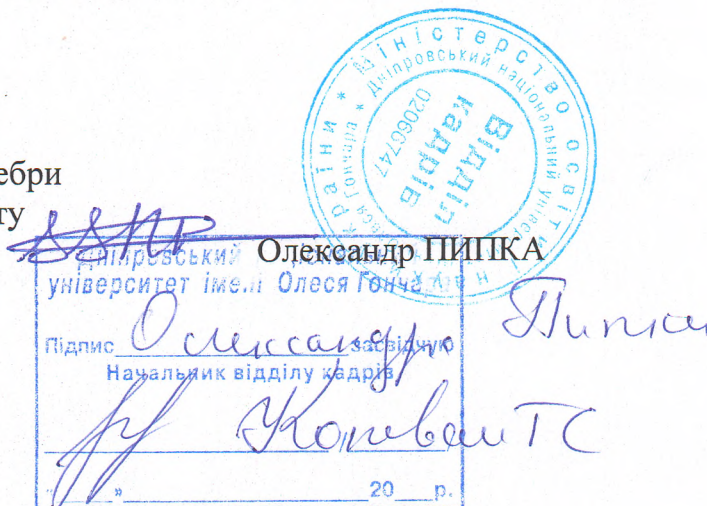 ебри
ту
Олександр ПИПКА
Міністерство освіти і науки України *
Дніпровський національний
Гончара *
02066747
Відділ
кадрів
Дніпровський
університет імені Олеся Гонча
Підпис Олександра Пипки засвідчую
Начальник відділу кадрів
ТС
" " 20 р.